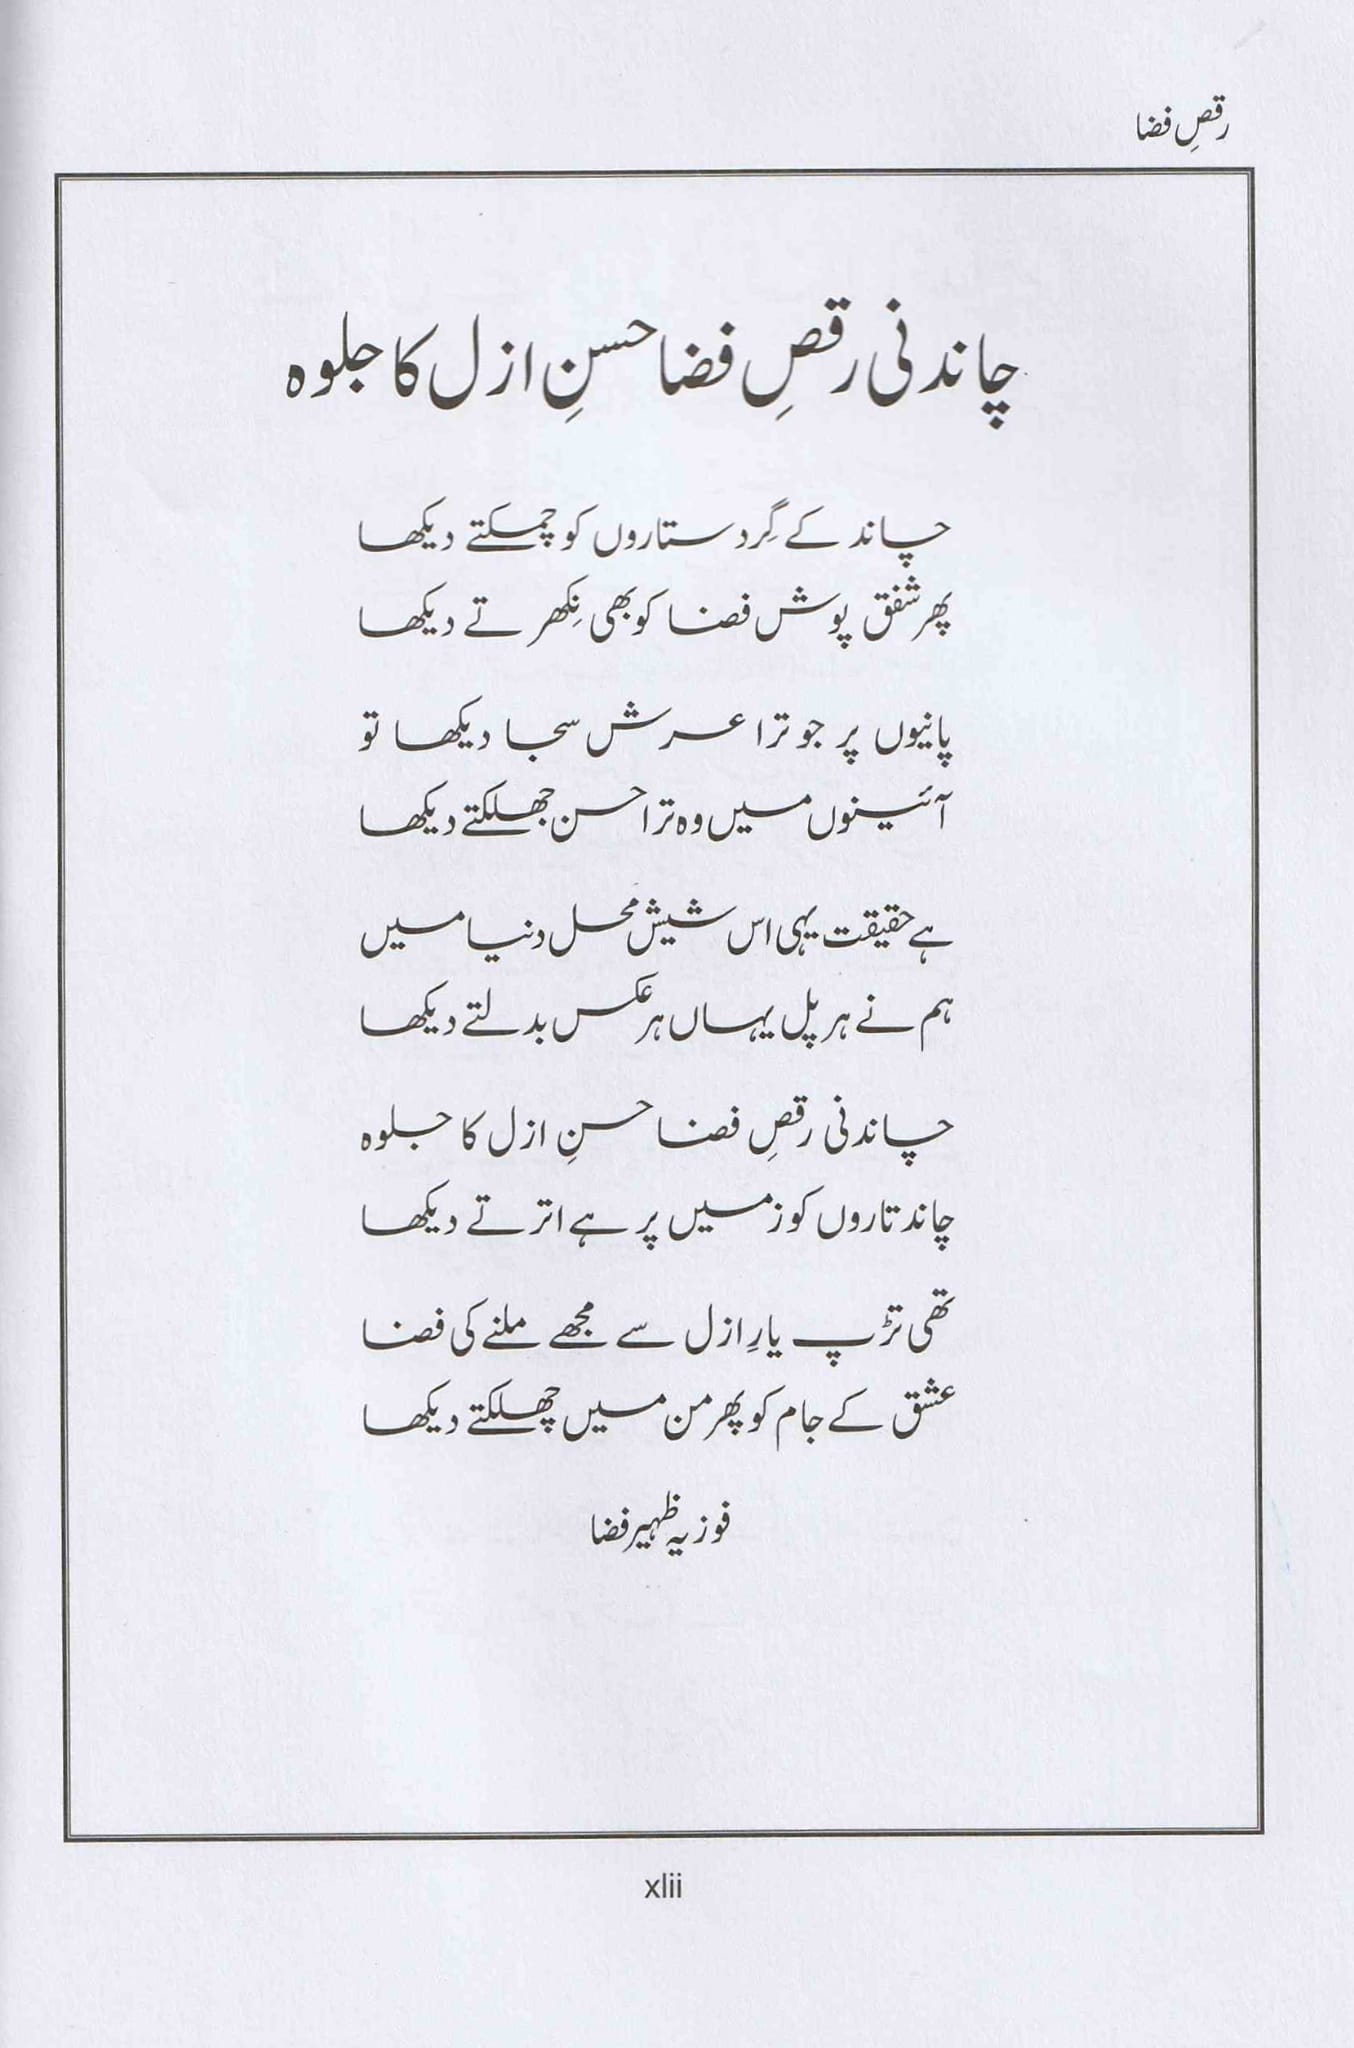 رقصِ فضا
چاندنی رقصِ فضا حسنِ ازل کا جلوہ
چاند کے گِرد ستاروں کو چمکتے دیکھا
پھر شفق پوش فضا کو بھی نِکھرتے دیکھا
پانیوں پر جو ترا عرش سجا دیکھا تو
آئینوں میں وہ ترا حسن جھلکتے دیکھا
ہے حقیقت یہی اس شیش محل دنیا میں
ہم نے ہر پل یہاں ہر عکس بدلتے دیکھا
چاندنی رقصِ فضا حسنِ ازل کا جلوہ
چاند تاروں کو زمیں پر ہے اترتے دیکھا
تھی تڑپ یارِ ازل سے مجھے ملنے کی فضا
عشق کے جام کو پھر من میں چھلکتے دیکھا
فوزیہ ظہیر فضا
xlii